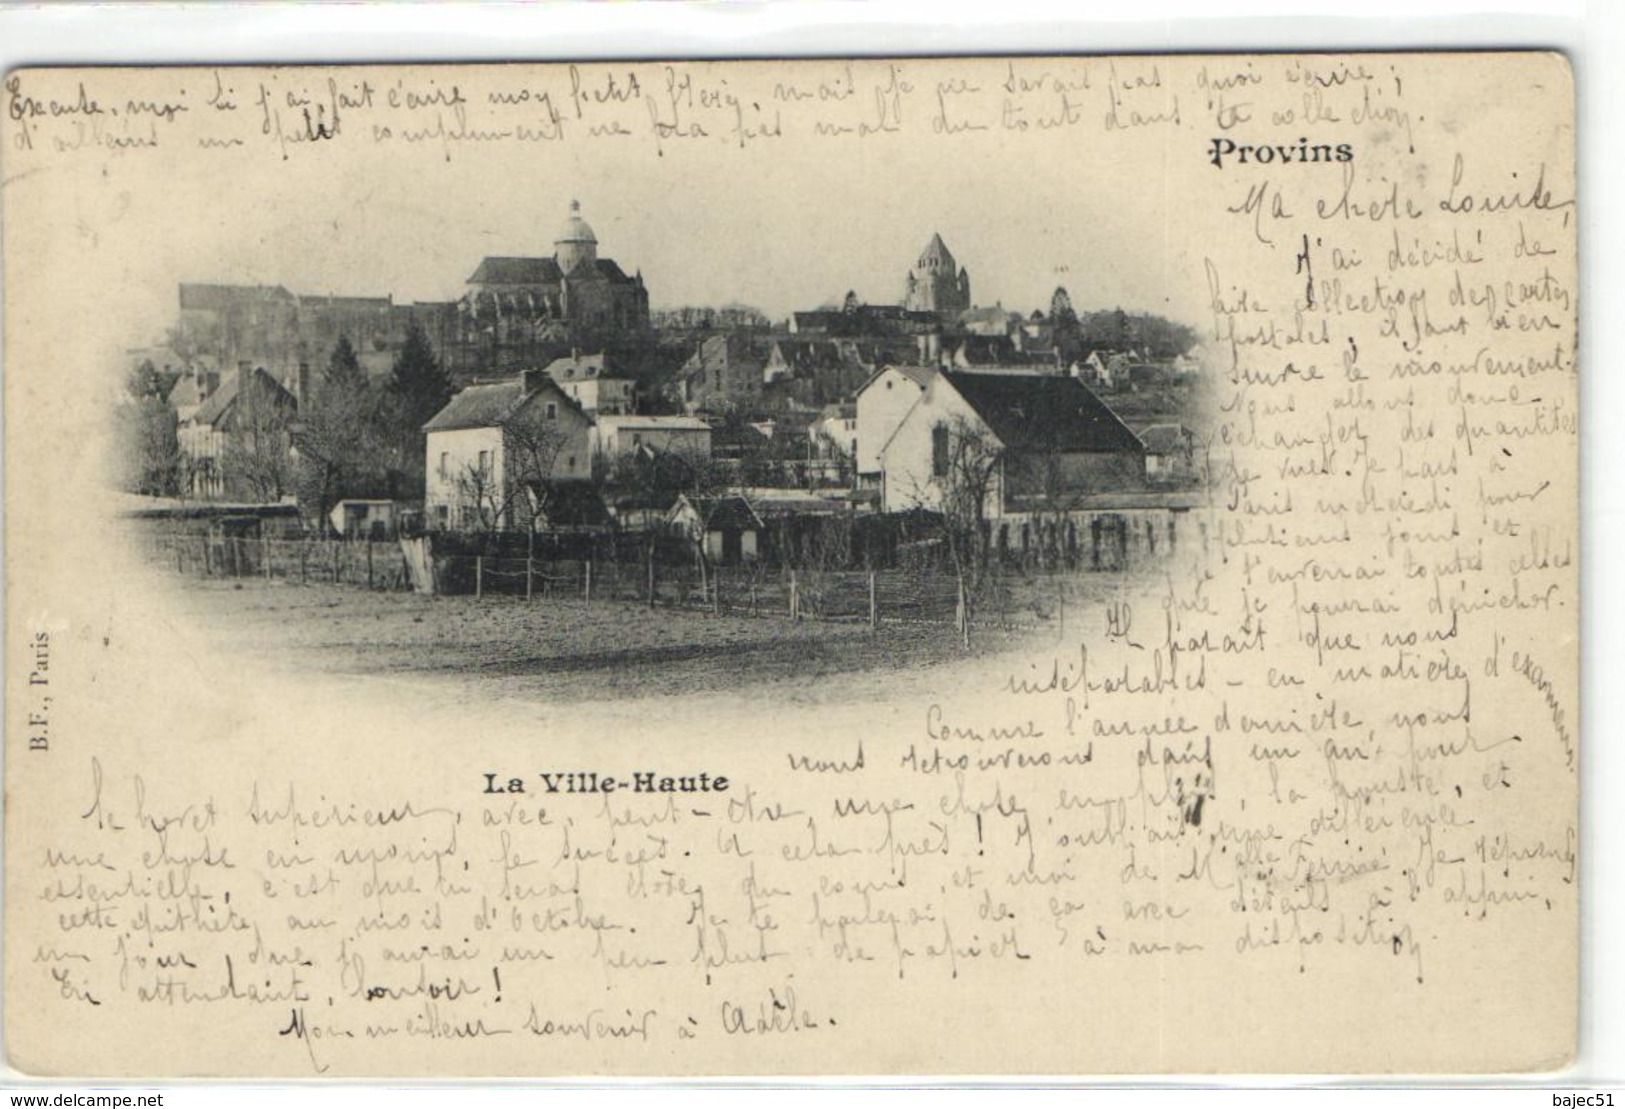 Excuse-moi si j'ai fait écrire mon petit frère, mais je ne savais pas quoi écrire ;
d'ailleurs un petit compliment ne fera pas mal du tout dans ta collection.
Provins
Ma chère Louise,
J'ai décidé de
faire collection de cartes
postales, il faut bien
suivre le mouvement.
Nous allons donc
échanger des quantités
de vues. Je pars à
Paris mercredi pour
plusieurs jours et
je t'enverrai toutes celles
que je pourrai dénicher.
Il paraît que nous
inséparables - en matière d'examens.
Comme l'année dernière, nous
nous retrouverons dans un an pour
La Ville-Haute
le brevet supérieur, avec, peut-être, une chose en plus, la, et
une chose en moins, le succès. A cela près ! J'oubliais une différence
essentielle, c'est que tu seras élève du cours, et moi de Melle. Je
cette épithète au mois d'Octobre. Je te parlerai de ça avec détails à l'appui,
un jour que j'aurai un peu plus de papier à ma disposition.
En attendant, bonsoir !
Mon meilleur souvenir à Adèle.
B.F., Paris
delcampe.net
bajec51